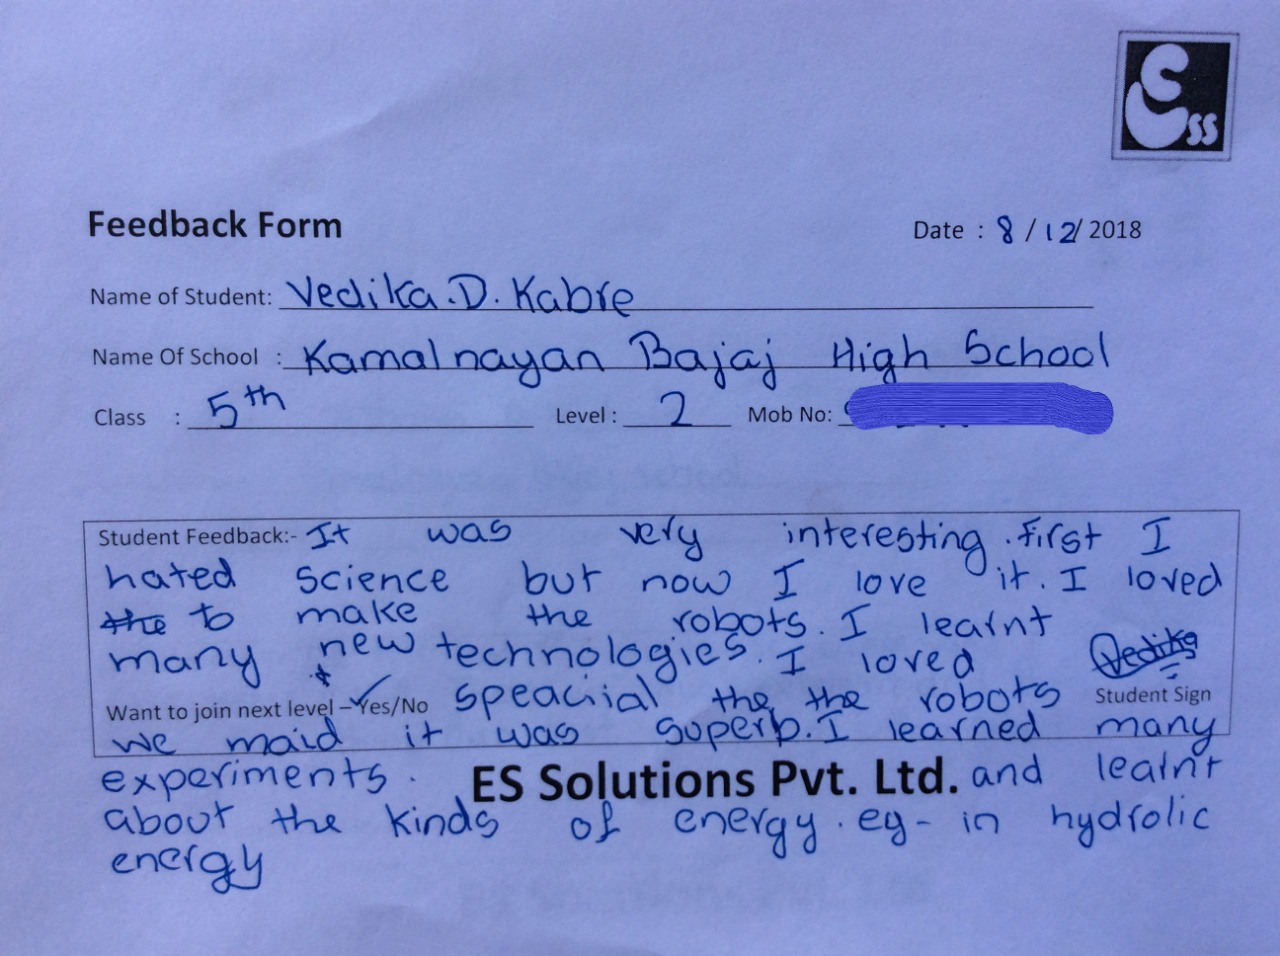 Ess
Feedback Form
Date : 8/12/2018
Name of Student: Vedika.D. Kabre
Name Of School : Kamalnayan Bajaj High School
Class : 5th Level : 2 Mob No:
Student Feedback:- It was very interesting. first I
hated science but now I love it. I loved
the to make the robots. I learnt
many new technologies. I loved
Vedika
Want to join next level – Yes/No speacial the the robots Student Sign
we maid it was superb. I learned many
experiments. ES Solutions Pvt. Ltd. and learnt
about the kinds of energy. eg- in hydrolic
energy